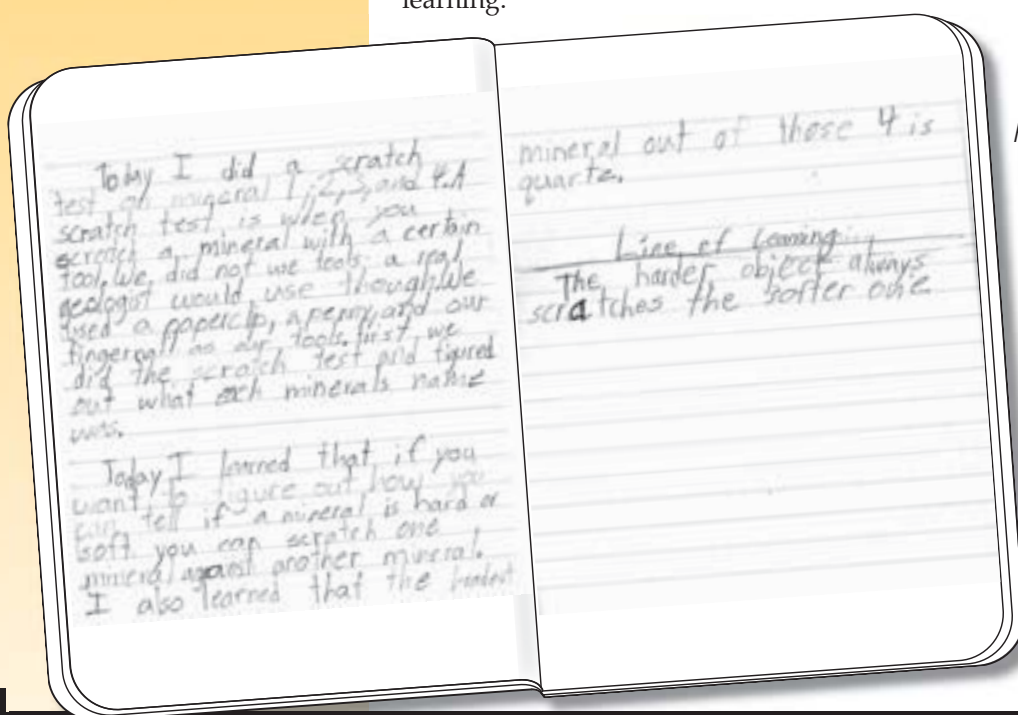 learning.
Today I did a scratch
test on mineral 1, 2, 3, and 4. A
scratch test is when you
scratch a mineral with a certain
tool. We did not use tools a real
geologist would use though. We
used a paperclip, a penny, and our
fingernail as our tools. first we
did the scratch test and figured
out what each minerals name
was.
Today I learned that if you
want to figure out how you
can tell if a mineral is hard or
soft you can scratch one
mineral against another mineral.
I also learned that the hardest
mineral out of these 4 is
quartz.
Line of Learning...
The harder object always
scratches the softer one